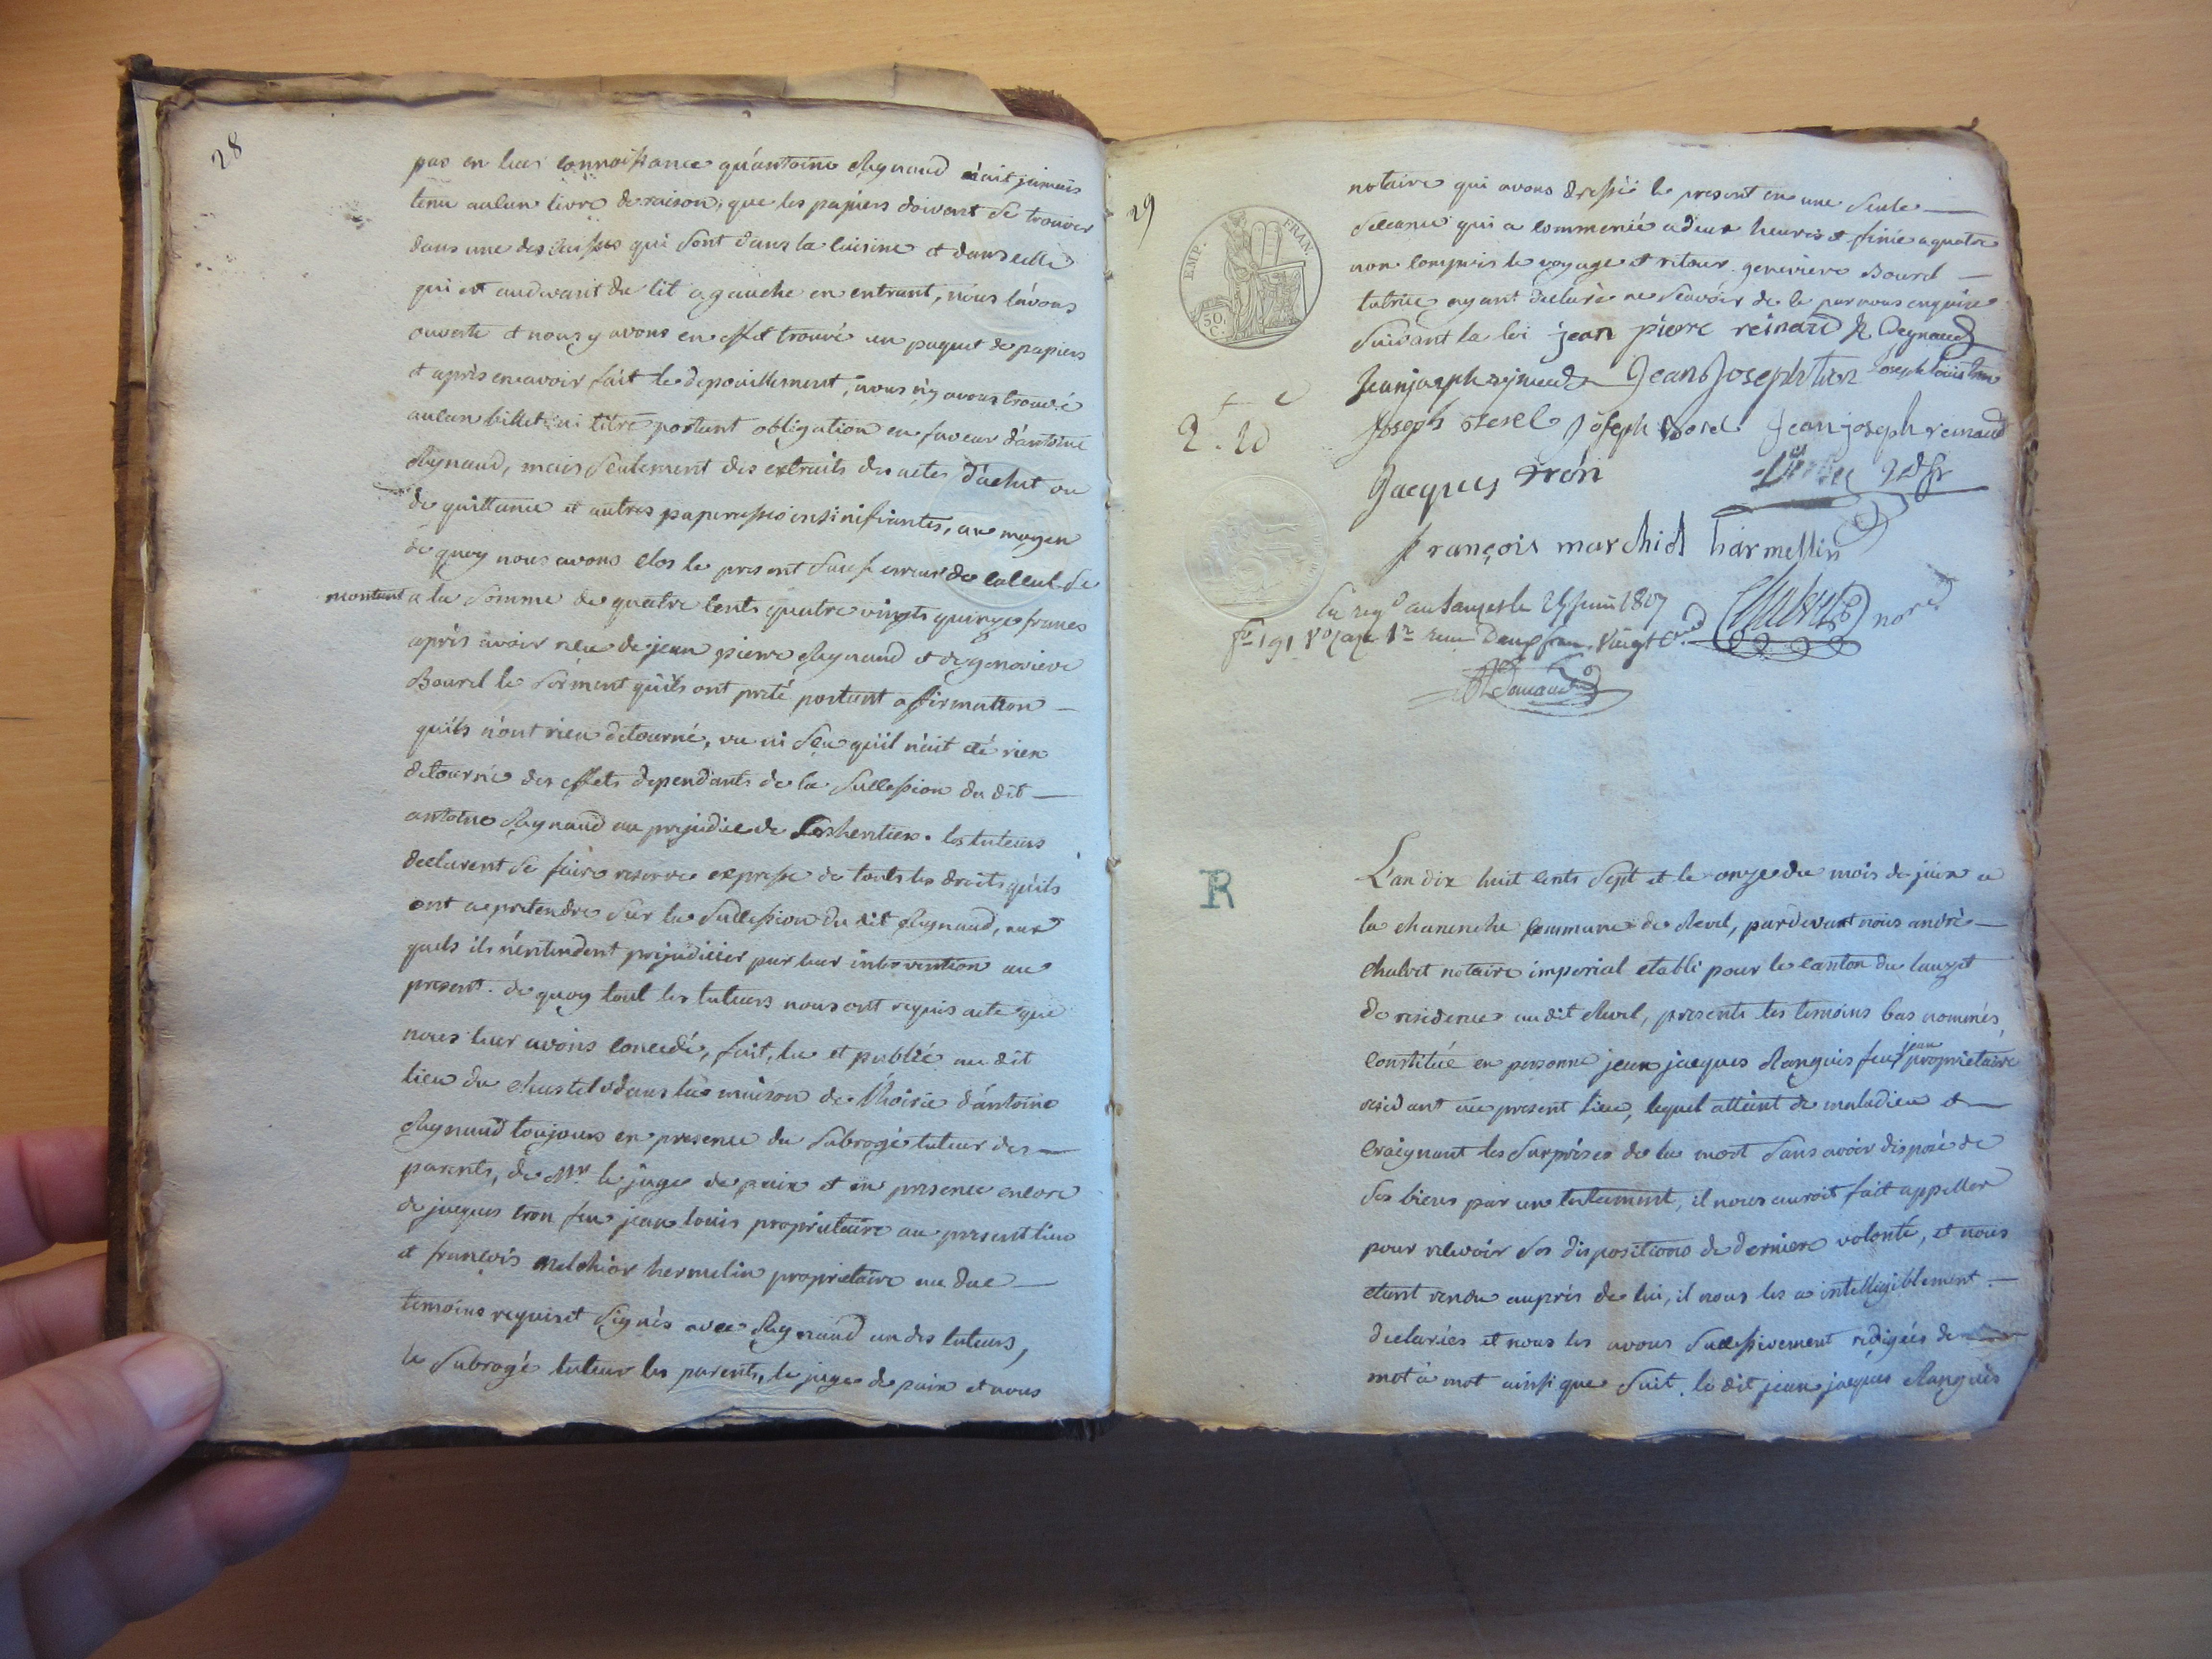 28
pas en leur connoissance qu'antoine Reynaud n'ait jamais
tenu aucun livre de raison, que les papiers doivent se trouver
dans une des caisses qui sont dans la cuisine et dans celle
qui est au devant du lit a gauche en entrant, nous l'avons
ouverte et nous y avons en effet trouvé un paquet de papiers
et après en avoir fait le depouillement, nous n'y avons trouvé
aucun billet ni titre portant obligation en faveur d'antoine
Reynaud, mais seulement des extraits des actes d'achat ou
de quittance et autres paperasses insinifiantes, au moyen
de quoy nous avons clos le present sauf erreur de calcul se
montant a la somme de quatre cents quatre vingts quinze francs
après avoir reçu de jean pierre Reynaud et de genevieve
Bourel le serment qu'ils ont preté portant affirmation
qu'ils n'ont rien detourné, vu ni sçu qu'il n'ait eté rien
detourné des effets dependants de la succession du dit
antoine Reynaud au prejudice de ses heritiers. les tuteurs
declarent se faire reserve expresse de touts les droits qu'ils
ont a pretendre sur la succession du dit Reynaud, aux
quels ils n'entendent prejudicier par leur intervention au
present. de quoy tout les tuteurs nous ont requis acte que
nous leur avons concedé, fait, lu et publié au dit
lieu du chastel dans la maison de l'hoirie d'antoine
Reynaud toujours en presence du subrogé tuteur des
parents, de Mr. le juge de paix et en presence encore
de jacques tron feu jean louis proprietaire au present lieu
et françois melchior hermelin proprietaire au
temoins requis et signés avec Reynaud un des tuteurs,
le subrogé tuteur les parents, le juge de paix et nous
29
notaire qui avons dressé le present en une seule
sceance qui a commencé a deux heures et finie a quatre
non compris le voyage et retour. genevieve Bourel
tutrice ayant declaré ne sçavoir de le par nous enquise
suivant la loi jean pierre reinaud Reynaud
Jean joseph reynaud Jean Joseph tron Joseph louis tron
EMP. FRAN.
50 C.
2. 20
joseph joseph Borel Jean joseph renaud
Jacques tron
françois marchiol harmellin
En regé au Lauzet le juin 1807
fo 191 Vo Case 1re reçu Deux fran. vingt
Chabert nore
R
L'an dix huit cents sept et le onze du mois de juin a
la chanenche commune de Revel, pardevant nous andré
chalvet notaire imperial etabli pour le canton du lauzet
de residence au dit Revel, presents les temoins bas nommés,
constitué en personne jean jacques Ranguis feu jean proprietaire
residant au present lieu, lequel atteint de maladie et
craignant les surprises de la mort sans avoir disposé de
ses biens par un testament, il nous auroit fait appeller
pour recevoir ses dispositions de derniere volonté, et nous
etant rendu auprés de lui, il nous les a intelligiblement
declarées et nous les avons successivement redigées de
mot à mot ainsi que suit. le dit jean jacques Ranguis